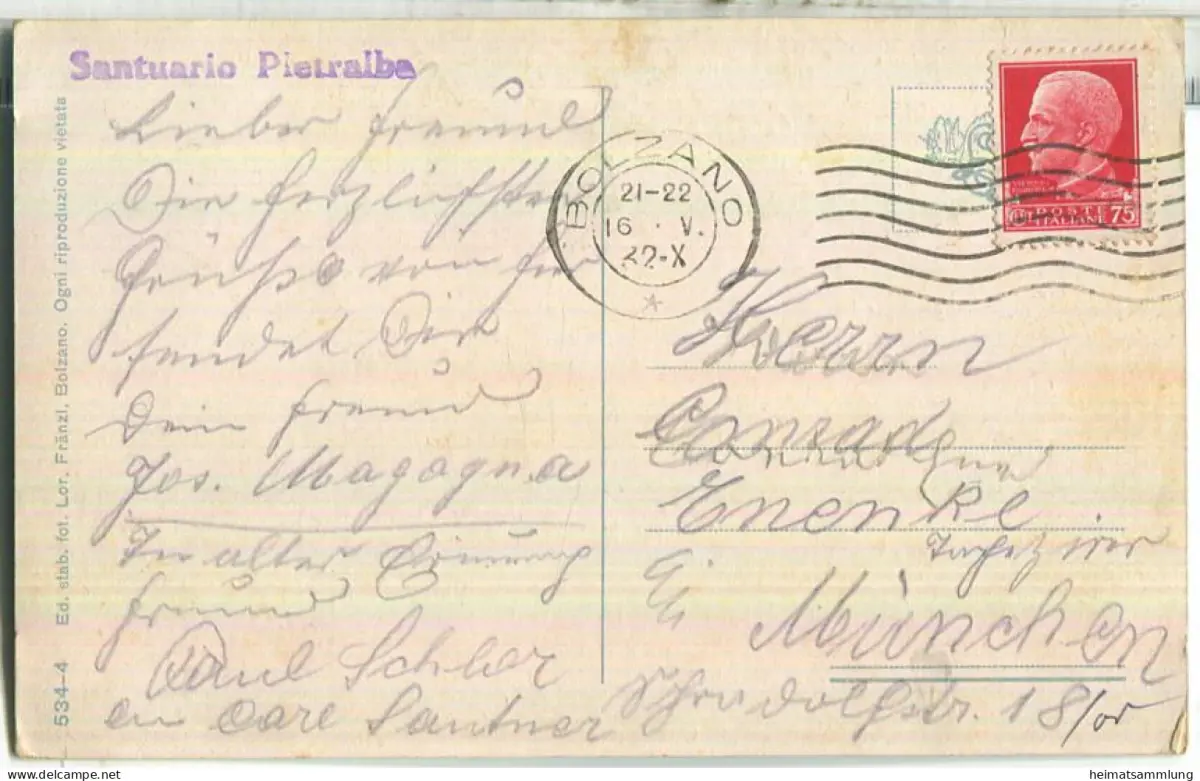 Santuario Pietralba
Lieber Freund
Die herzlichsten
Grüße von hier
sendet Dir
Dein Freund
Jos. Magagna
In alter Erinnerung
Freund
Paul
Carl Santner
534-4 Ed. stab. fot. Lor. Fränzl, Bolzano. Ogni riproduzione vietata
BOLZANO
21-22
16 · V.
32-X
POSTE
ITALIANE
75
Herrn
Conrad
Enenkl
Tapezirer
München
Schraudolfstr. 18/
delcampe.net
heimatsammlung